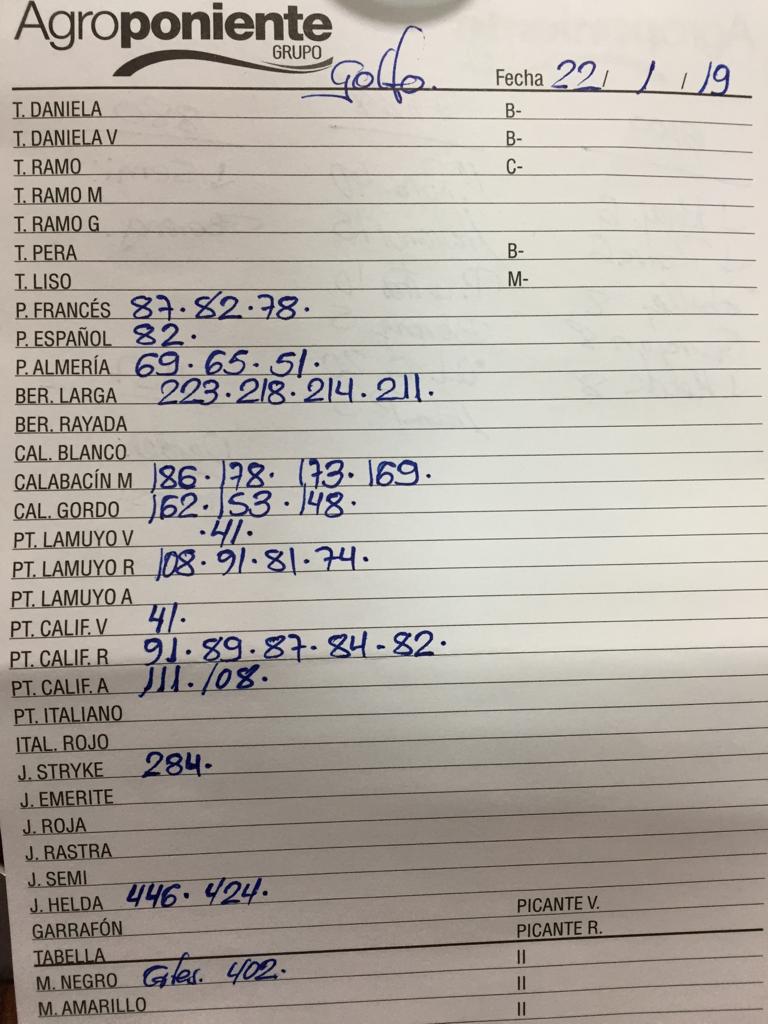 Agroponiente
GRUPO
Golfo. Fecha 22/ 1 /19
T. DANIELA B-
T. DANIELA V B-
T. RAMO C-
T. RAMO M
T. RAMO G
T. PERA B-
T. LISO M-
P. FRANCÉS 87. 82. 78.
P. ESPAÑOL 82.
P. ALMERÍA 69. 65. 51.
BER. LARGA 223. 218. 214. 211.
BER. RAYADA
CAL. BLANCO
CALABACÍN M 186. 178. 173. 169.
CAL. GORDO 162. 153. 148.
PT. LAMUYO V .41.
PT. LAMUYO R 108. 91. 81. 74.
PT. LAMUYO A
PT. CALIF. V 41.
PT. CALIF. R 91. 89. 87. 84-82.
PT. CALIF. A 111. 108.
PT. ITALIANO
ITAL. ROJO
J. STRYKE 284.
J. EMERITE
J. ROJA
J. RASTRA
J. SEMI
J. HELDA 446. 424.
GARRAFÓN PICANTE V.
TABELLA PICANTE R.
M. NEGRO 402. II
M. AMARILLO II
II